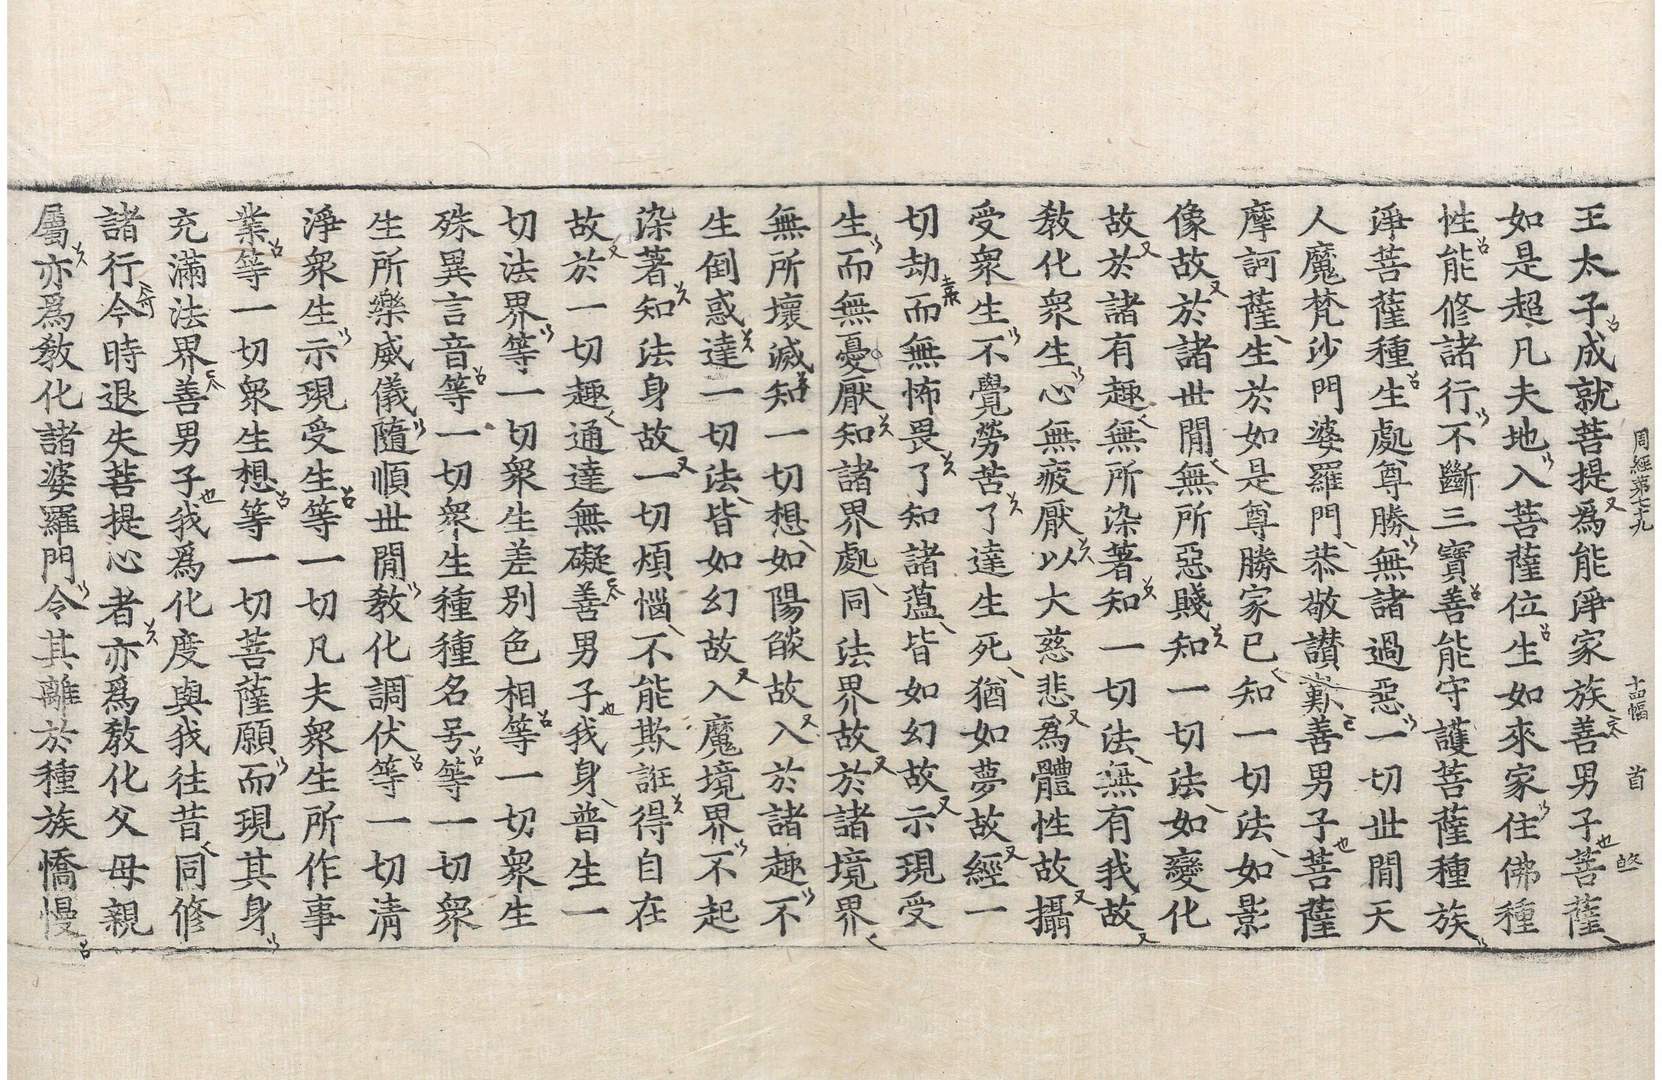 周經第七十九 十四幅 首
王太子成就菩提爲能淨家族善男子菩薩
如是超凡夫地入菩薩位生如來家住佛種
性能修諸行不斷三寶善能守護菩薩種族
淨菩薩種生處尊勝無諸過惡一切世閒天
人魔梵沙門婆羅門恭敬讃歎善男子菩薩
摩訶薩生於如是尊勝家已知一切法如影
像故於諸世閒無所惡賤知一切法如變化
故於諸有趣無所染著知一切法無有我故
敎化衆生心無疲厭以大慈悲爲體性故攝
受衆生不覺勞苦了達生死猶如夢故經一
切劫而無怖畏了知諸蘊皆如幻故示現受
生而無憂厭知諸界處同法界故於諸境界
無所壞滅知一切想如陽燄故入於諸趣不
生倒惑達一切法皆如幻故入魔境界不起
染著知法身故一切煩惱不能欺誑得自在
故於一切趣通達無礙善男子我身普生一
切法界等一切衆生差別色相等一切衆生
殊異言音等一切衆生種種名号等一切衆
生所樂威儀隨順世閒敎化調伏等一切淸
淨衆生示現受生等一切凡夫衆生所作事
業等一切衆生想等一切菩薩願而現其身
充滿法界善男子我爲化度與我往昔同修
諸行今時退失菩提心者亦爲敎化父母親
屬亦爲敎化諸婆羅門令其離於種族憍慢